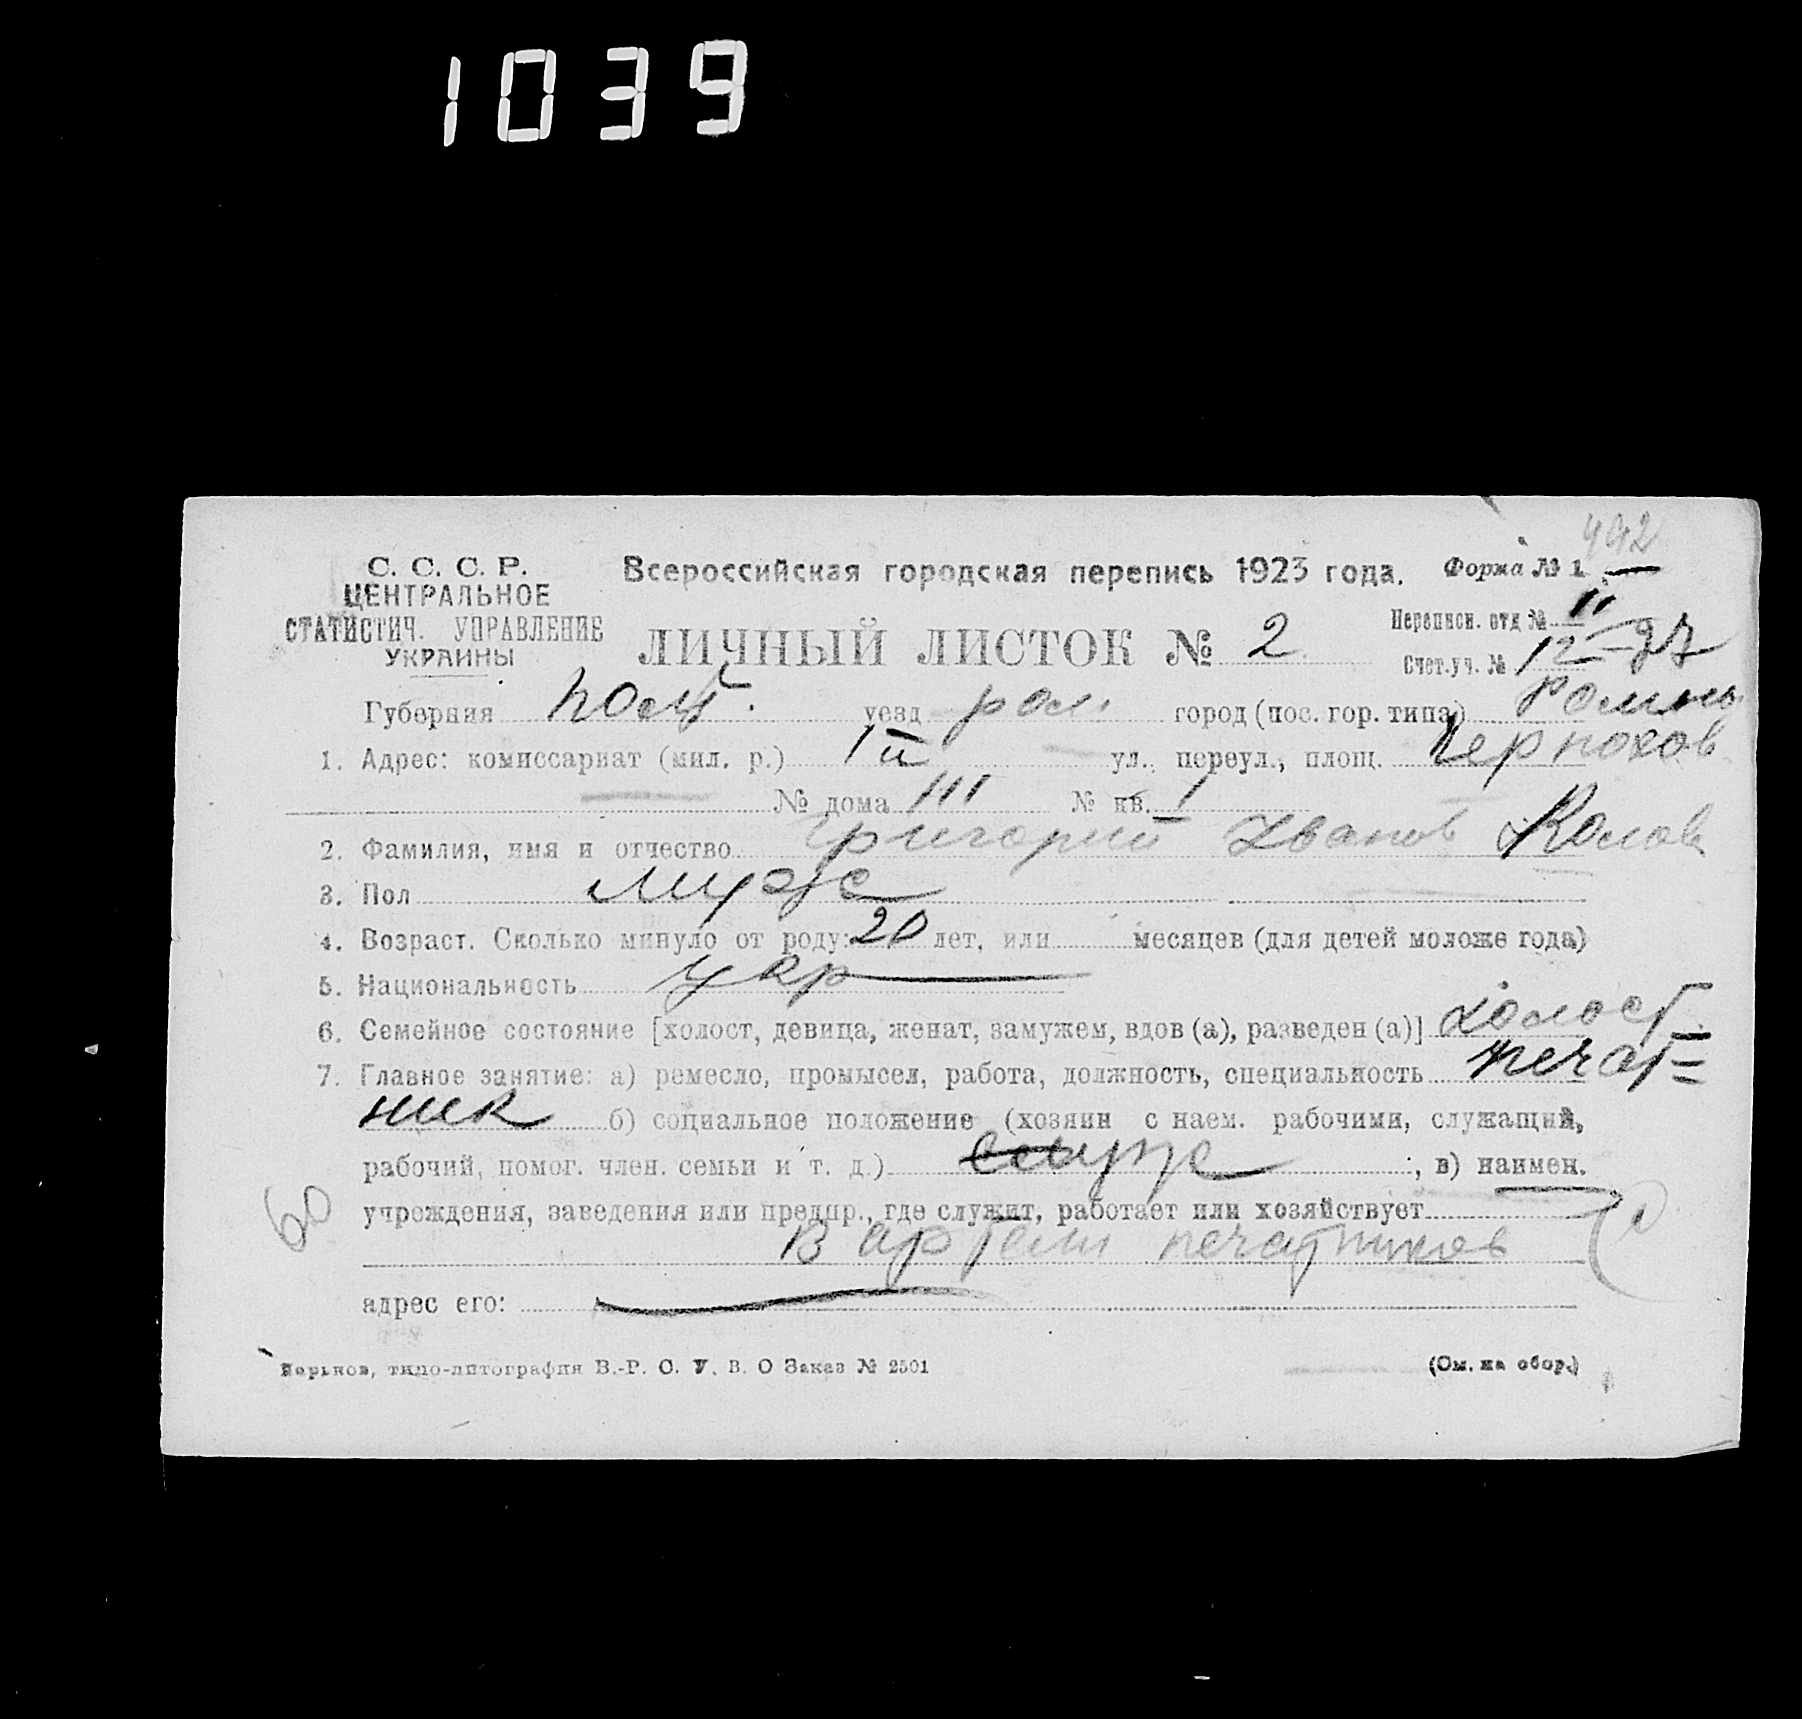 1039
492
С. С. С. Р.
ЦЕНТРАЛЬНОЕ
СТАТИСТИЧ. УПРАВЛЕНИЕ
УКРАИНЫ
Всероссийская городская перепись 1923 года.
Форма № 1.
ЛИЧНЫЙ ЛИСТОК № 2
Переписн. отд № II
Счет.уч. № 12-27
Губерния Полт. уезд ром. город (пос. гор. типа) Ромны
1. Адрес: комиссариат (мил. р.) 1й ул., переул., площ.
№ дома 111 № кв. 1
2. Фамилия, имя и отчество Григорий Иванов
3. Пол муж
4. Возраст. Сколько минуло от роду: 20 лет, или месяцев (для детей моложе года)
5. Национальность укр
6. Семейное состояние [холост, девица, женат, замужем, вдов (а), разведен (а)] холост
7. Главное занятие: а) ремесло, промысел, работа, должность, специальность печат=
ник б) социальное положение (хозяин с наем. рабочими, служащий,
рабочий, помог. член. семьи и т. д.) служ , в) наимен.
учреждения, заведения или предпр., где служит, работает или хозяйствует
В артели печатников
адрес его:
60
Харьков, типо-литография В.-Р. С. У. В. О Заказ № 2501
(См. на обор.)